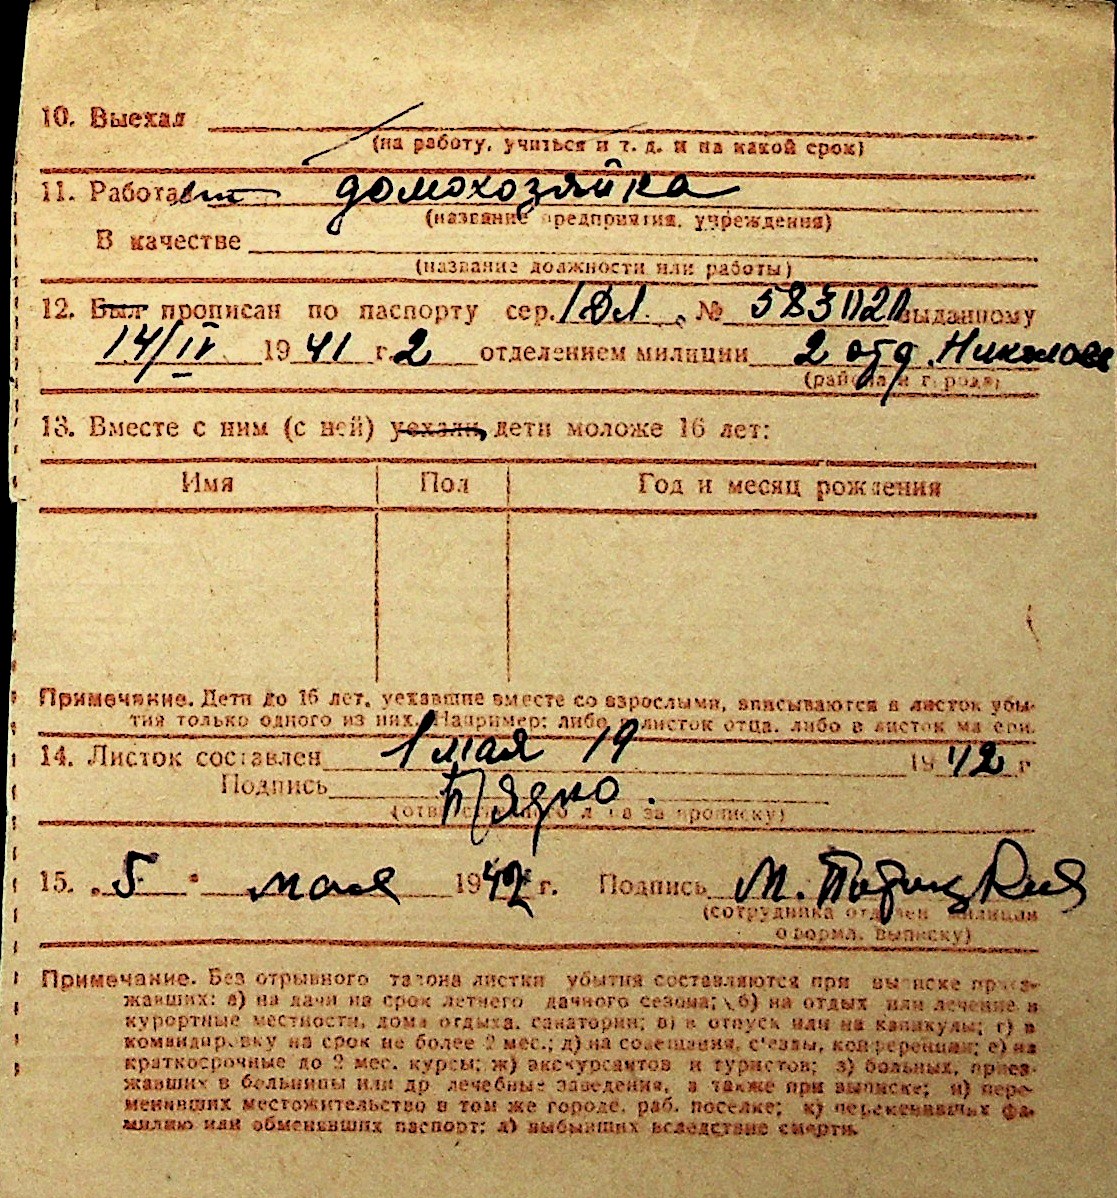 10. Выехал
(на работу, учиться и т. д. и на какой срок)
11. Работает домохозяйка
(название предприятия, учреждения)
В качестве
(название должности или работы)
12. Был прописан по паспорту сер. № выданному
14/IV 1941 г. 2 отделением милиции 2 отд. Николаев
(района и города)
13. Вместе с ним (с ней) уехали, дети моложе 16 лет:
Имя Пол Год и месяц рождения
Примечание. Дети до 16 лет, уехавшие вместе со взрослыми, вписываются в листок убы-
тия только одного из них. Например: либо в листок отца, либо в листок матери.
14. Листок составлен 1 мая 19 1942 г
Подпись
(ответственного лица за прописку)
15. „5" мая 1942 г. Подпись М.
(сотрудника отделен милиции
оформл. выписку)
Примечание. Без отрывного талона листки убытия составляются при выписке приез-
жавших: а) на дачи на срок летнего дачного сезона; б) на отдых или лечение в
курортные местности, дома отдыха, санатории; в) в отпуск или на каникулы; г) в
командировку на срок не более 2 мес.; д) на совещания, с'езды, конференции; е) на
краткосрочные до 2 мес. курсы; ж) экскурсантов и туристов; з) больных, приез-
жавших в больницы или др лечебные заведения, а также при выписке; и) пере-
менивших местожительство в том же городе, раб. поселке; к) переменивших фа-
милию или обменявших паспорт; л) выбывших вследствие смерти.